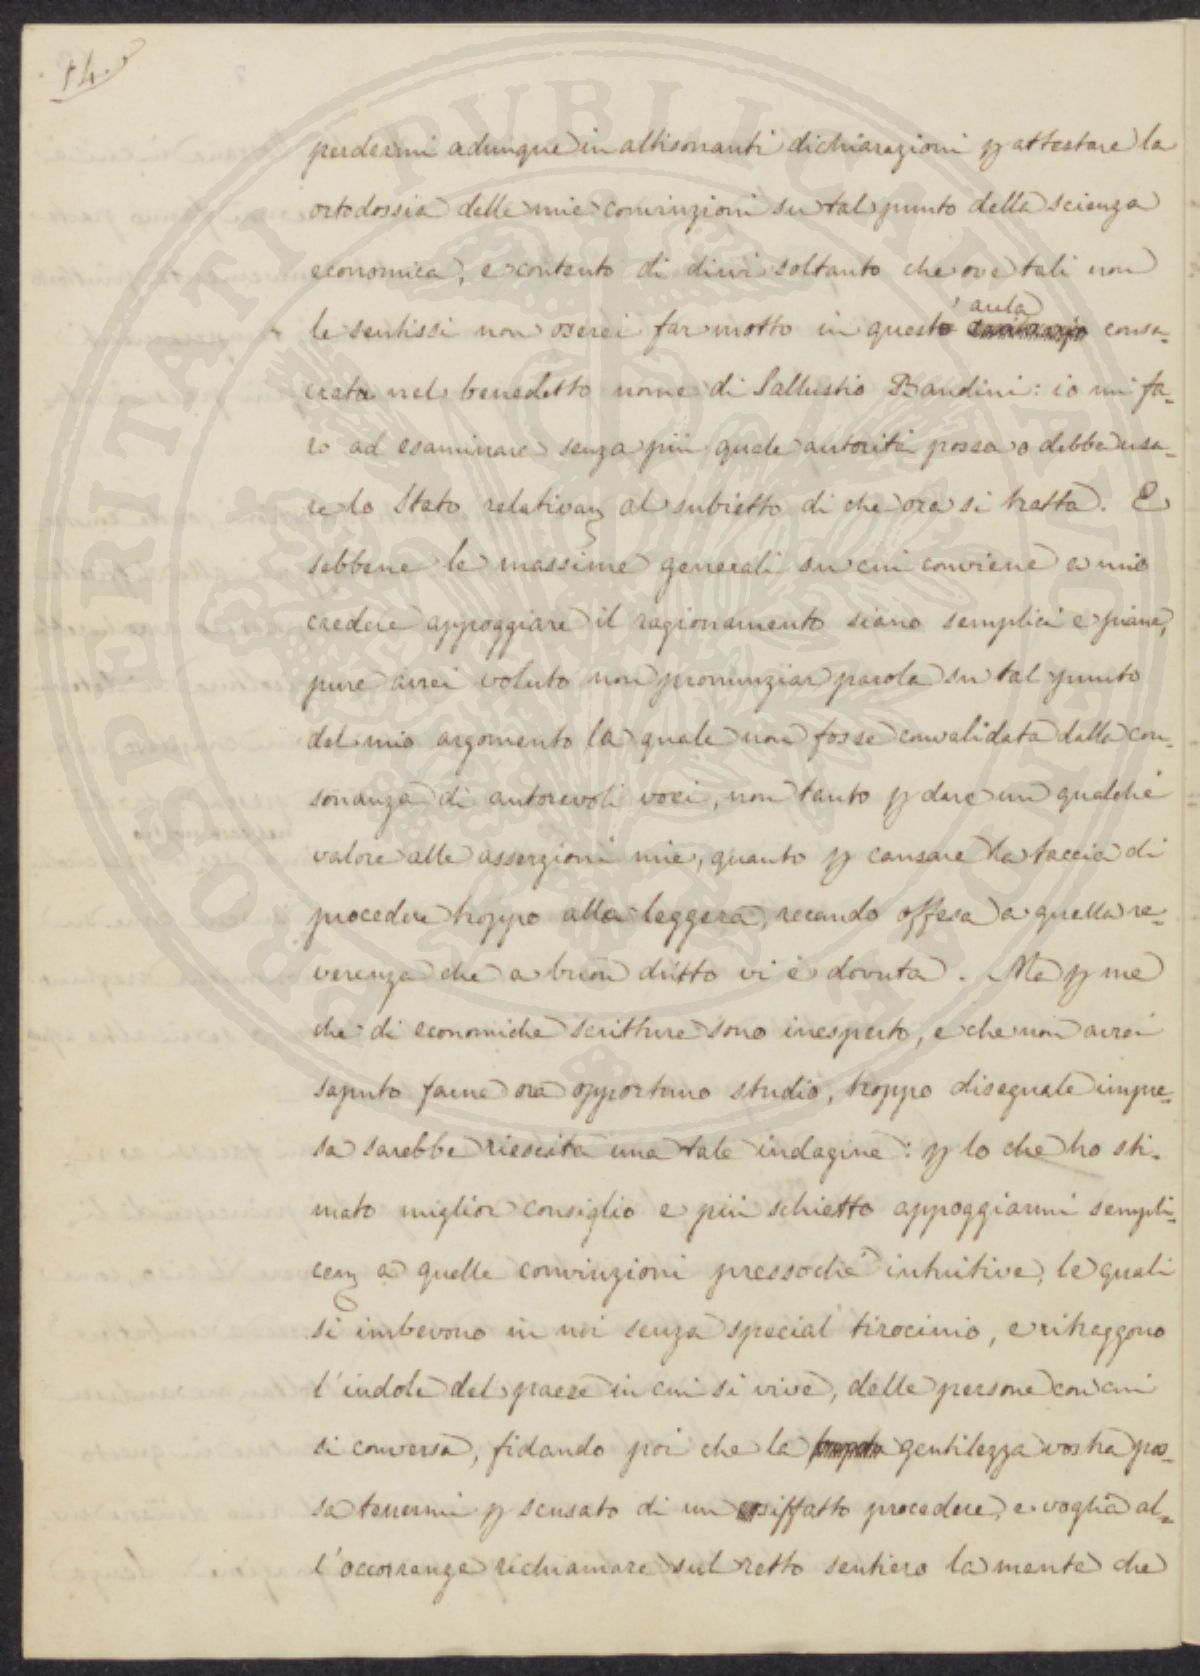 14.
perdermi adunque in altisonanti dichiarazioni p attestare la
ortodossia delle mie convinzioni su tal punto della scienza
economica, e contento di dirvi soltanto che ove tali non
aula
le sentissi non oserei far motto in questo consa-
crata nel benedetto nome di Sallustio Bandini: io mi fa-
rò ad esaminare senza più quale autorità possa o debba usa-
re lo Stato relativam al subietto di che ora si tratta. E
sebbene le massime generali su cui conviene a mio
credere appoggiare il ragionamento siano semplici e piane,
pure avrei voluto non pronunziar parola su tal punto
del mio argomento la quale non fosse convalidata dalla con-
sonanza di autorevoli voci, non tanto p dare un qualche
valore alle asserzioni mie, quanto p cansare la taccia di
procedere troppo alla leggera, recando offesa a quella re-
verenza che a buon dritto vi è dovuta. Ma p me
che di economiche scritture sono inesperto, e che non avrei
saputo farne ora opportuno studio, troppo diseguale impre-
sa sarebbe riescita una tale indagine: p lo che ho sti-
mato miglior consiglio e più schietto appoggiarmi sempli-
cem a quelle convinzioni pressochè intuitive, le quali
si imbevono in noi senza special tirocinio, e ritraggono
l'indole del paese in cui si vive, delle persone con cui
si conversa, fidando poi che la gentilezza vostra pos-
sa tenermi p scusato di un siffatto procedere, e voglia al-
l'occorrenza richiamare sul retto sentiero la mente che
PROSPERITATI PVBLICAE AVGENDAE